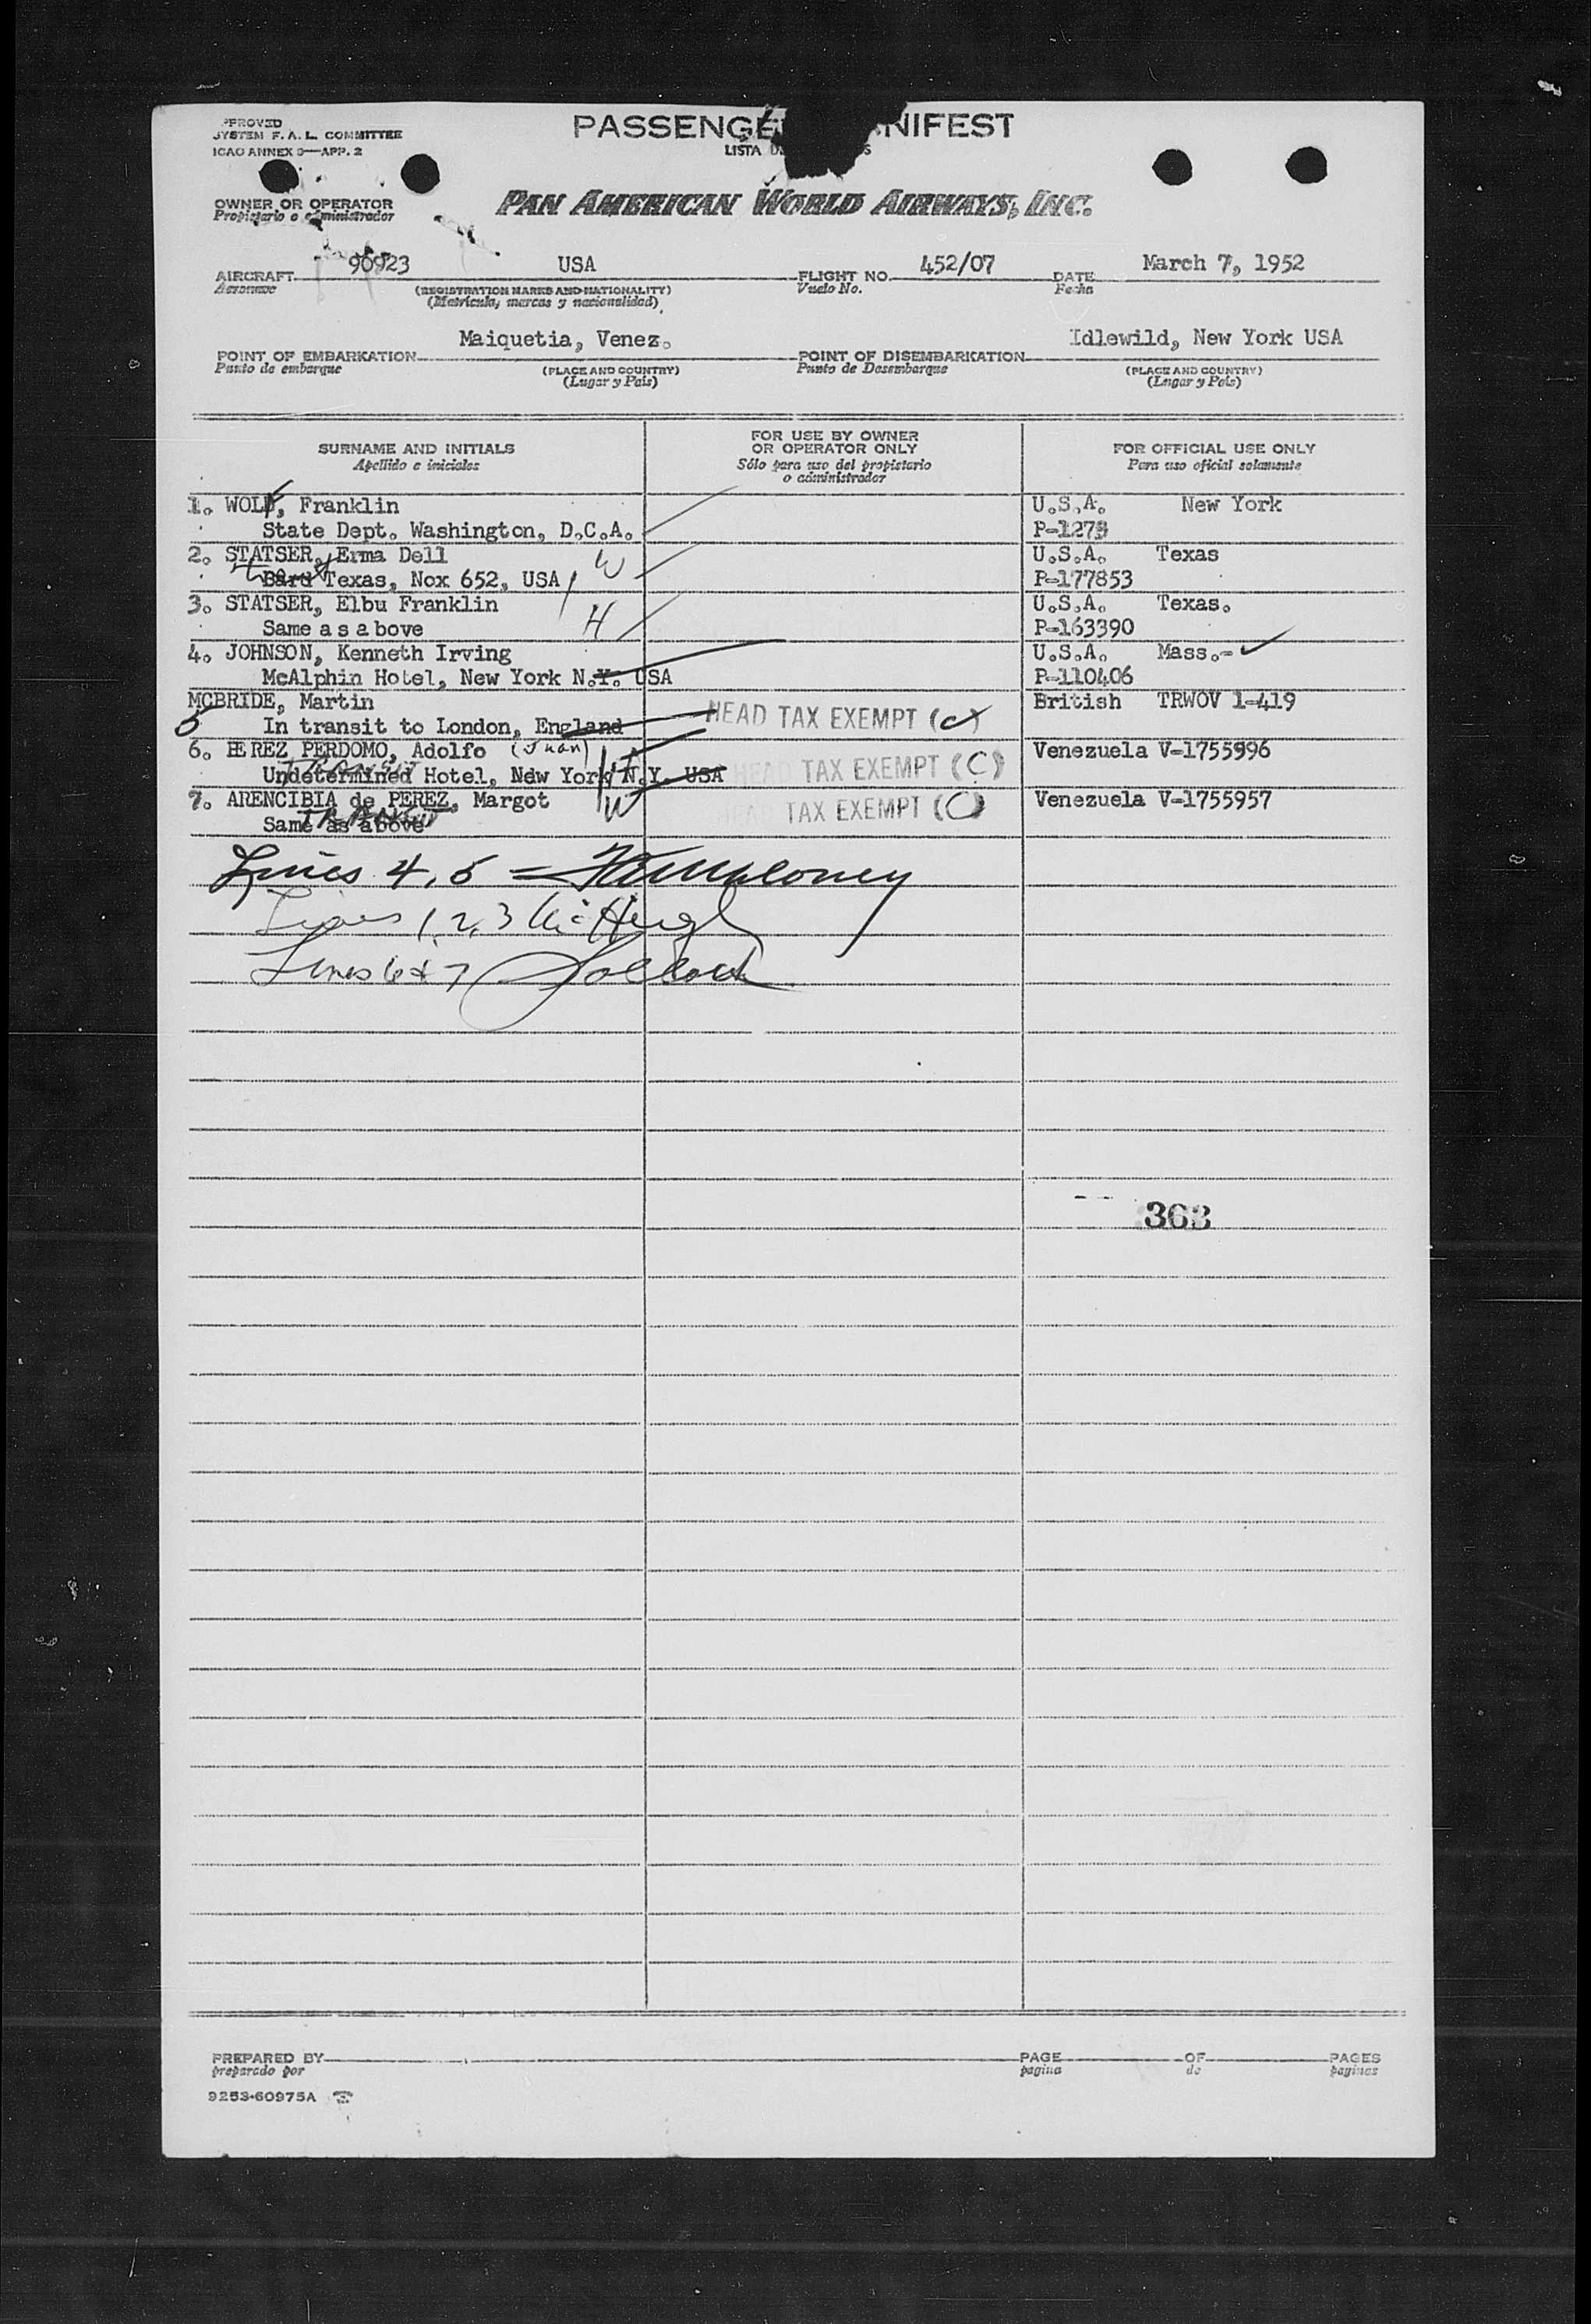 PROVED
SYSTEM F. A. L. COMMITTEE
ICAO ANNEX 9—APP. 2
PASSENGE NIFEST
LISTA
OWNER OR OPERATOR
Propietario o administrador
PAN AMERICAN WORLD AIRWAYS, INC.
AIRCRAFT 90923 USA FLIGHT NO. 452/07 DATE March 7, 1952
Aeronave (REGISTRATION MARKS AND NATIONALITY) Vuelo No. Fecha
(Matrícula, marcas y nacionalidad)
POINT OF EMBARKATION Maiquetia, Venez. POINT OF DISEMBARKATION Idlewild, New York USA
Punto de embarque (PLACE AND COUNTRY) Punto de Desembarque (PLACE AND COUNTRY)
(Lugar y País) (Lugar y País)
SURNAME AND INITIALS FOR USE BY OWNER OR OPERATOR ONLY FOR OFFICIAL USE ONLY
Apellido e iniciales Sólo para uso del propietario o administrador Para uso oficial solamente
1. WOLF, Franklin U.S.A. New York
State Dept. Washington, D.C.A. P-1273
2. STATSER, Erma Dell U.S.A. Texas
Bard Texas, Nox 652, USA W P-177853
3. STATSER, Elbu Franklin U.S.A. Texas.
Same as above H P-163390
4. JOHNSON, Kenneth Irving U.S.A. Mass.-
McAlphin Hotel, New York N.Y. USA P-110406
MCBRIDE, Martin British TRWOV 1-419
5 In transit to London, England HEAD TAX EXEMPT (c)
6. PEREZ PERDOMO, Adolfo (Juan) Venezuela V-1755996
TRANSIT
Undetermined Hotel, New York N.Y. USA H HEAD TAX EXEMPT (C)
7. ARENCIBIA de PEREZ, Margot W HEAD TAX EXEMPT (C) Venezuela V-1755957
TRANSIT
Same as above
Lines 4, 5 = Maloney
Lines 1, 2, 3
Lines 6 & 7
363
PREPARED BY PAGE OF PAGES
preparado por pagina de paginas
9253-60975A